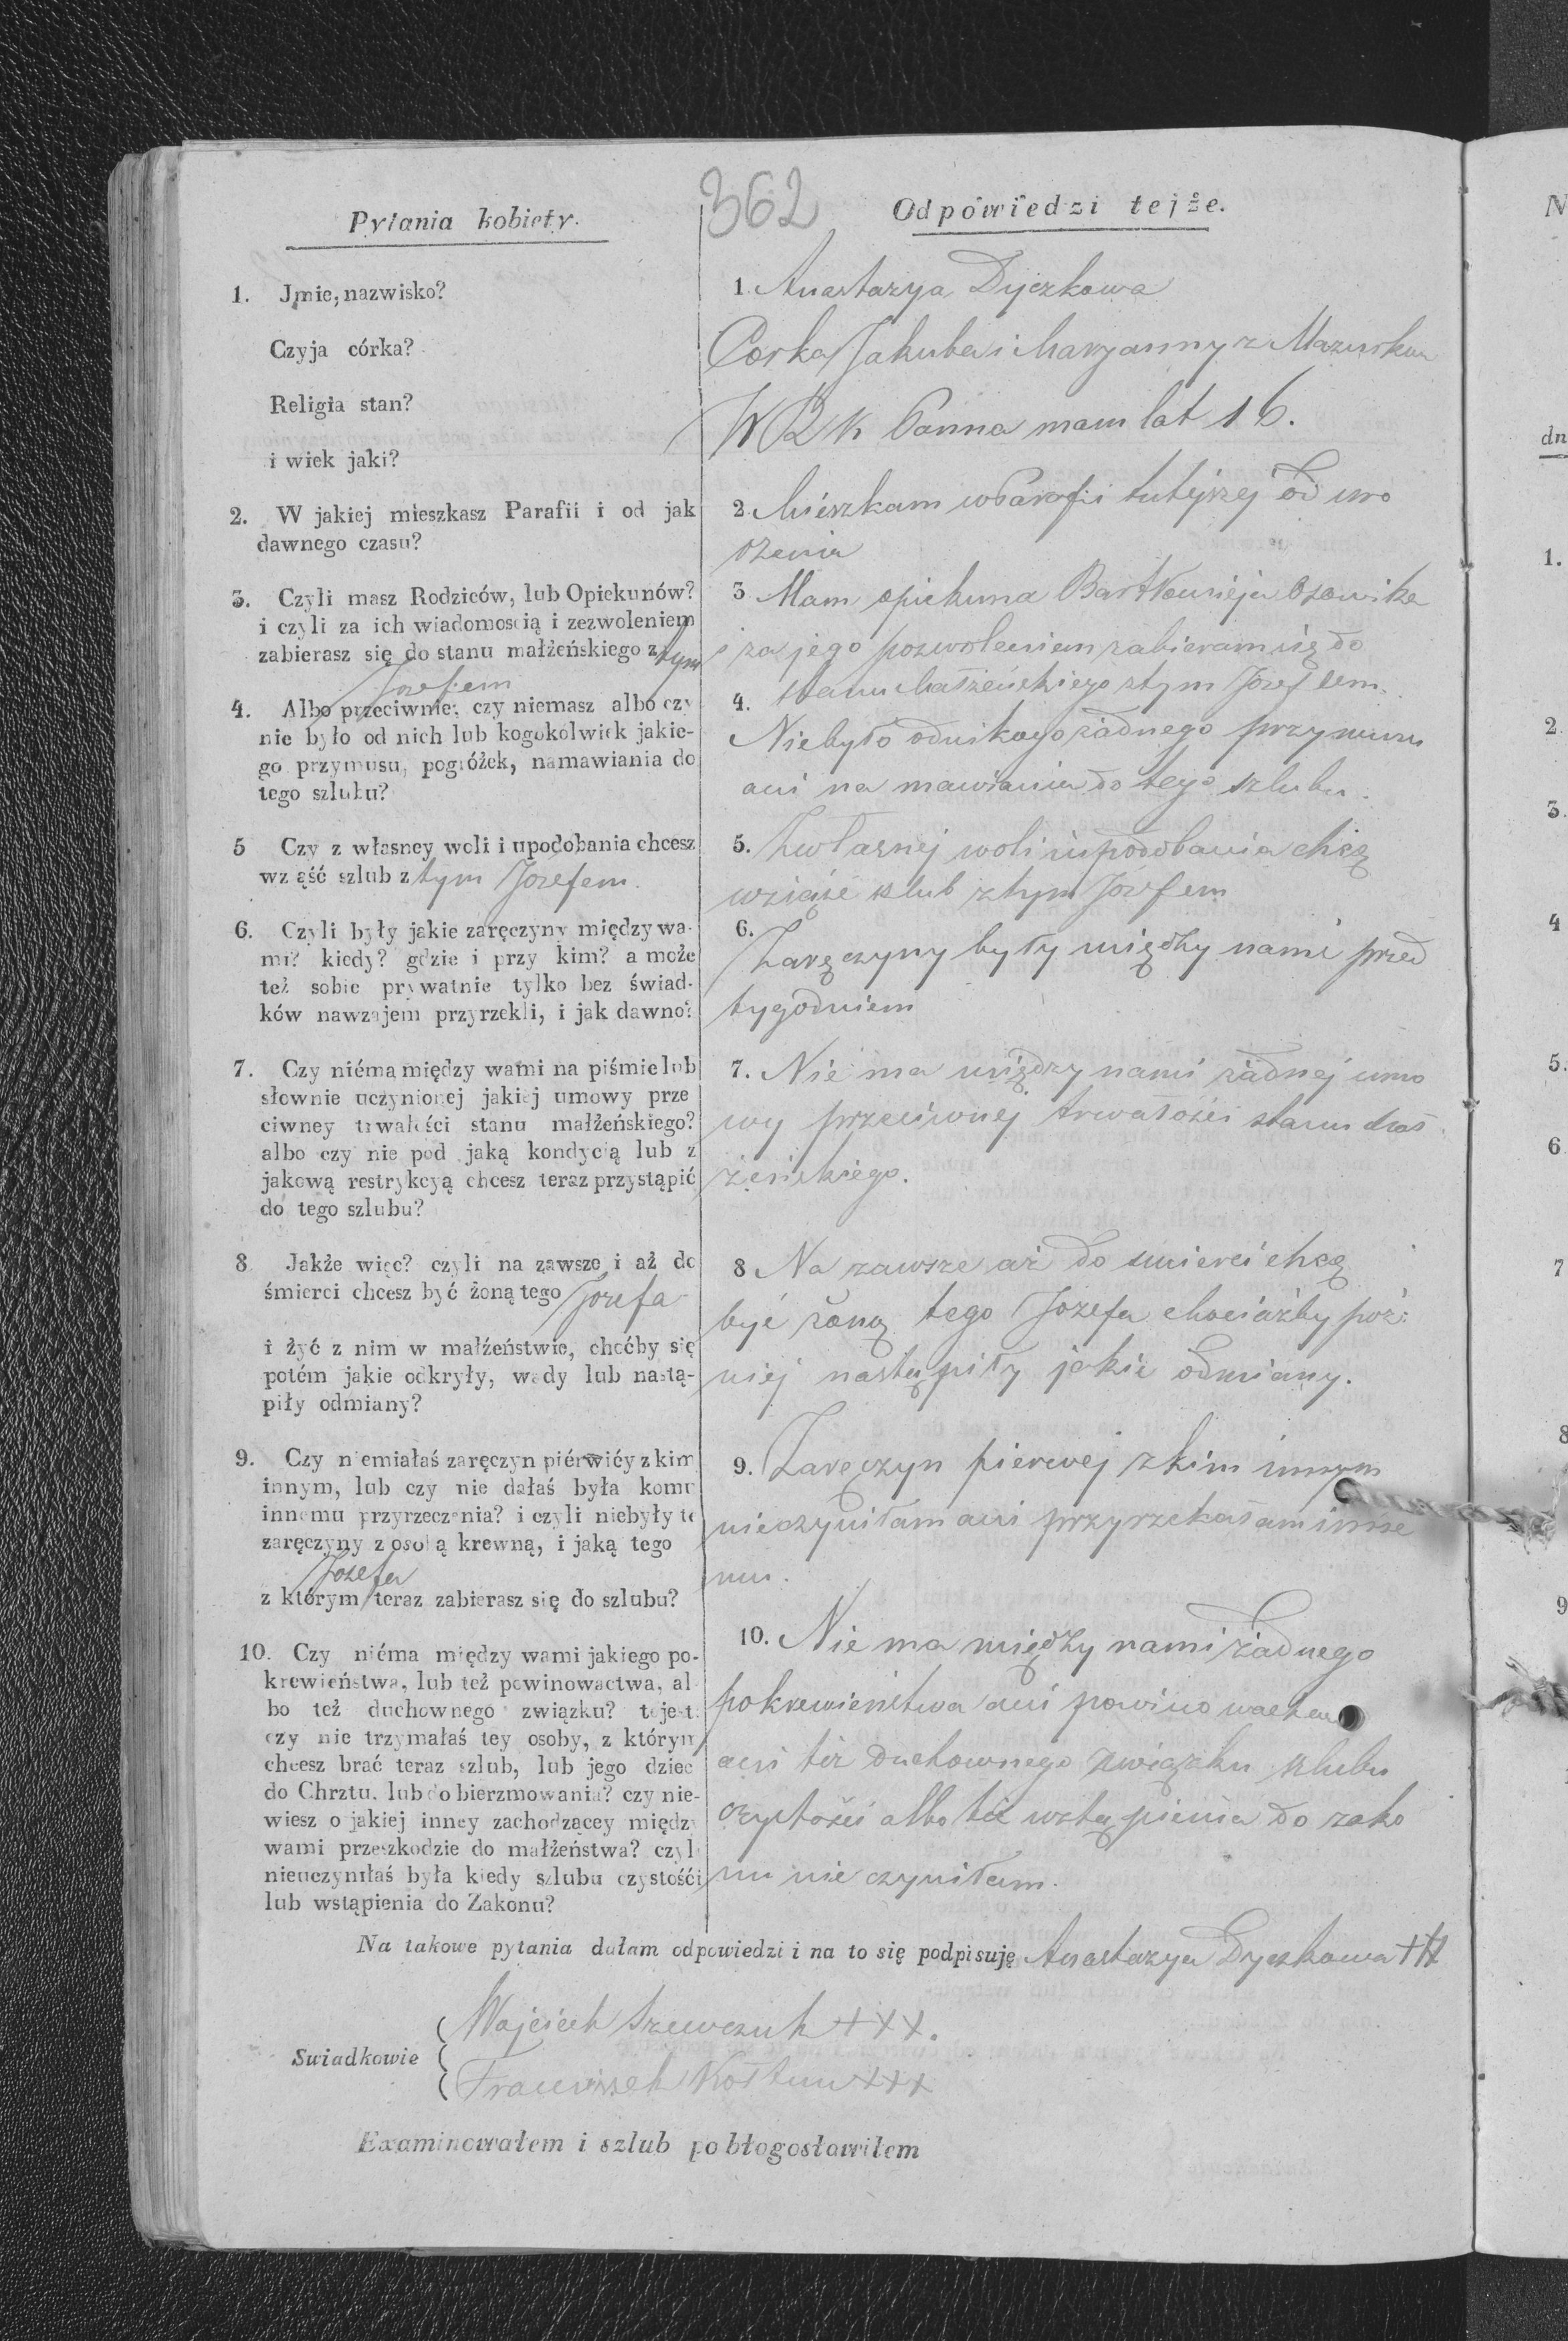 362
Pytania kobiety.
1. Jmie, nazwisko?
Czyja córka?
Religia stan?
i wiek jaki?
2. W jakiej mieszkasz Parafii i od jak
dawnego czasu?
3. Czyli masz Rodziców, lub Opiekunów?
i czyli za ich wiadomoscią i zezwoleniem
zabierasz się do stanu małżeńskiego z tym
Jozefem
4. Albo przeciwnie; czy niemasz albo czy
nie było od nich lub kogokolwiek jakie-
go przymusu, pogróżek, namawiania do
tego szlubu?
5 Czy z własney woli i upodobania chcesz
wz ąść szlub z tym Jozefem.
6. Czyli były jakie zaręczyny między wa-
mi? kiedy? gdzie i przy kim? a może
też sobie prywatnie tylko bez świad-
ków nawzajem przyrzekli, i jak dawno?
7. Czy niéma między wami na piśmie lub
słownie uczynionej jakiej umowy prze
ciwney trwałości stanu małżeńskiego?
albo czy nie pod jaką kondycią lub z
jakową restrykcyą chcesz teraz przystąpić
do tego szlubu?
8 Jakże więc? czyli na zawsze i aż do
śmierci chcesz być żoną tego Jozefa
i żyć z nim w małżeństwie, choćby się
potém jakie odkryły, wady lub nastą-
piły odmiany?
9. Czy niemiałaś zaręczyn piérwiéy z kim
innym, lub czy nie dałaś była komu
innemu przyrzeczenia? i czyli niebyły te
zaręczyny z osobą krewną, i jaką tego
Jozefa
z którym teraz zabierasz się do szlubu?
10. Czy niéma między wami jakiego po-
krewieństwa, lub też powinowactwa, al
bo też duchownego związku? tojest
czy nie trzymałaś tey osoby, z którym
chcesz brać teraz szlub, lub jego dziec
do Chrztu, lub do bierzmowania? czy nie-
wiesz o jakiej inney zachodzącey między
wami przeszkodzie do małżeństwa? czyli
nieuczyniłaś była kiedy szlubu czystości
lub wstąpienia do Zakonu?
Odpowiedzi tejże.
1. Anastazya Dyczkowa
Corka Jakuba i Maryanny z Mazurków
W R K Panna mam lat 16.
2. Mieszkam w Parafii tutejszej od uro
dzenia
3 Mam opiekuna Bartłomieja
za jego pozwoleniem zabieram się do
4. stanu Małżeńskiego z tym Jozefem.
Niebyło od nikogo żadnego przymusu
ani na mawiania do tego szlubu.
5. Z własnej woli i upodobania chcę
wziąść szlub z tym Józefem
6. Zaręczyny były między nami przed
tygodniem
7. Nie ma między nami żadnej umo
wy przeciwnej trwałości stanu mał
żeńskiego.
8 Na zawsze aż do smierci chcę
być żoną tego Jozefa chociażby poź:
niej nastąpiły jakie odmiany.
9. Zaręczyn pierwej z kim innym
nieczyniłam ani przyrzekałam inne
mu.
10. Nie ma między nami żadnego
pokrewieństwa ani powinowactwa
ani też duchownego związku szlubu
czystości albo też wstąpienia do zako
nu nie czyniłam.
Na takowe pytania dałam odpowiedzi i na to się podpisuję Anastazya Dyczkowa +++
Swiadkowie
Wojciech Szewczuk +++.
Franciszek Kołtun +++
Examinowałem i szlub pobłogosławiłem
N
dn
1.
2
3.
4
5.
6
7
8
9